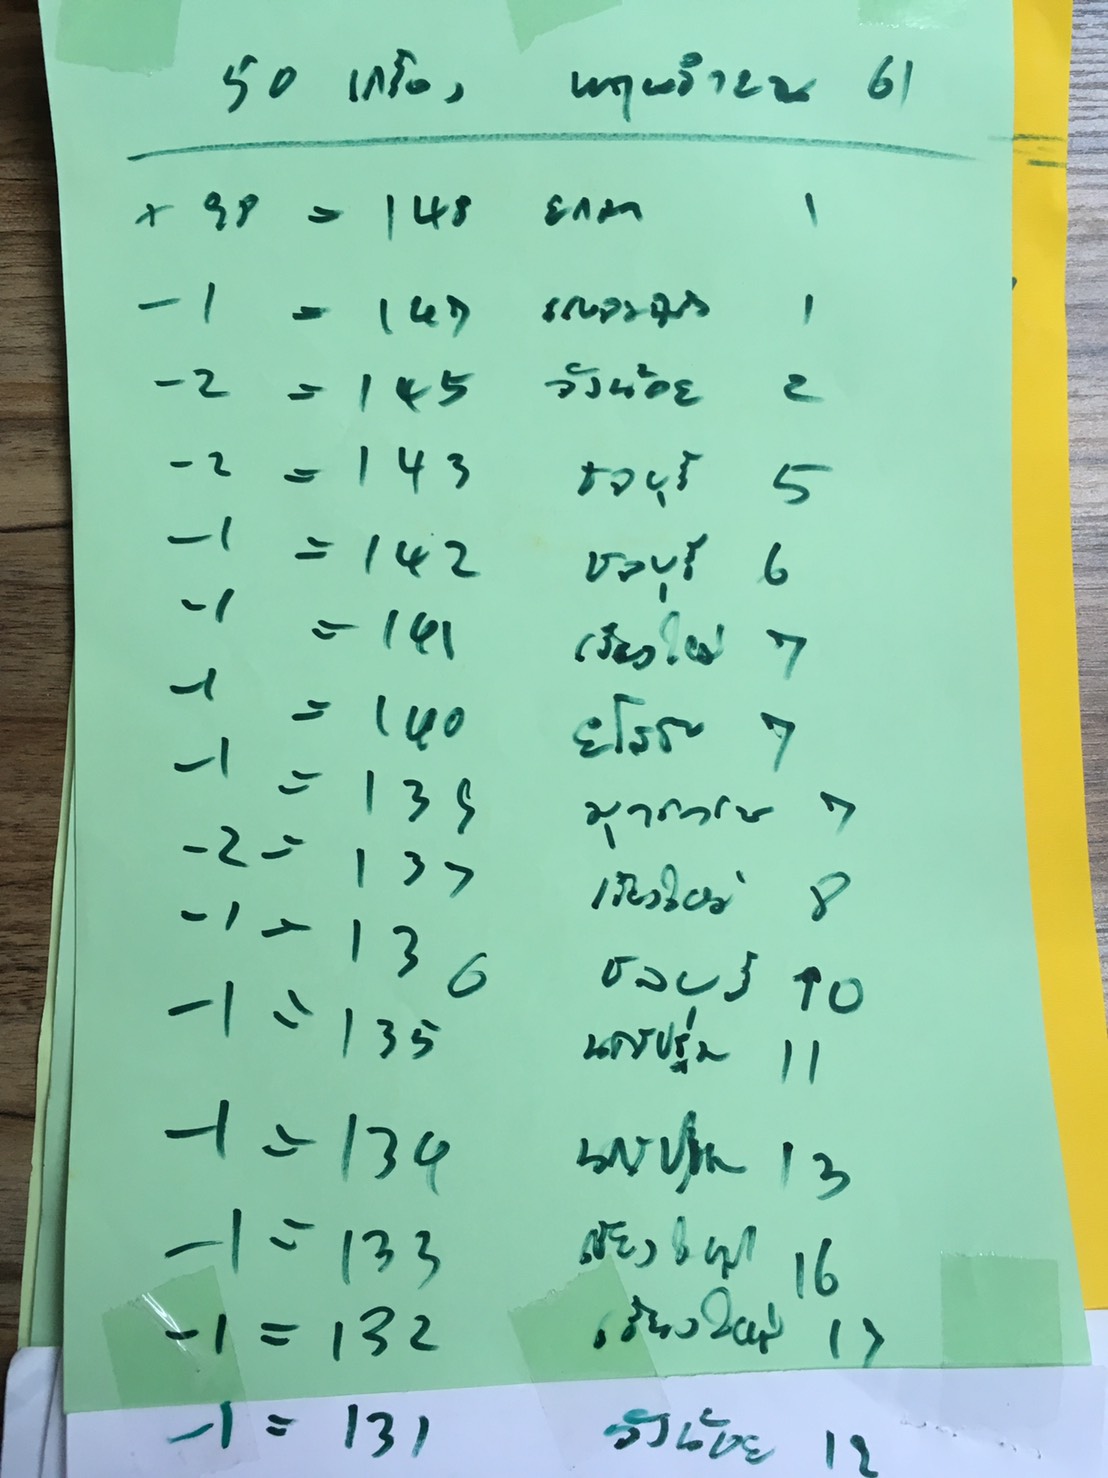 50 เครื่อง พฤศจิกายน 61
+ 98 = 148 ยกมา 1
-1 = 147 1
-2 = 145 วังน้อย 2
-2 = 143 ชลบุรี 5
-1 = 142 ชลบุรี 6
-1 = 141 เชียงใหม่ 7
-1 = 140 ยโสธร 7
-1 = 139 มุกดาหาร 7
-2 = 137 เชียงใหม่ 8
-1 = 136 ชลบุรี 10
-1 = 135 นครปฐม 11
-1 = 134 นครปฐม 13
-1 = 133 เชียงใหม่ 16
-1 = 132 เชียงใหม่ 17
-1 = 131 วังน้อย 12